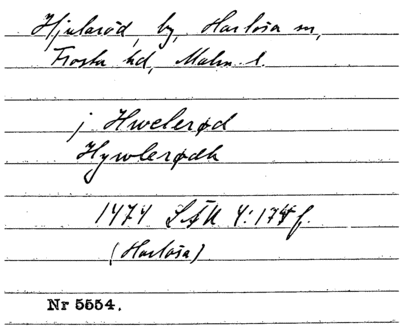 Hjularöd, by, Harlösa sn,
Frosta hd, Malm. l.
j Hwelerød
Hywlerødh
1474 LÅU 4:174 f.
(Harlösa)
Nr 5554.